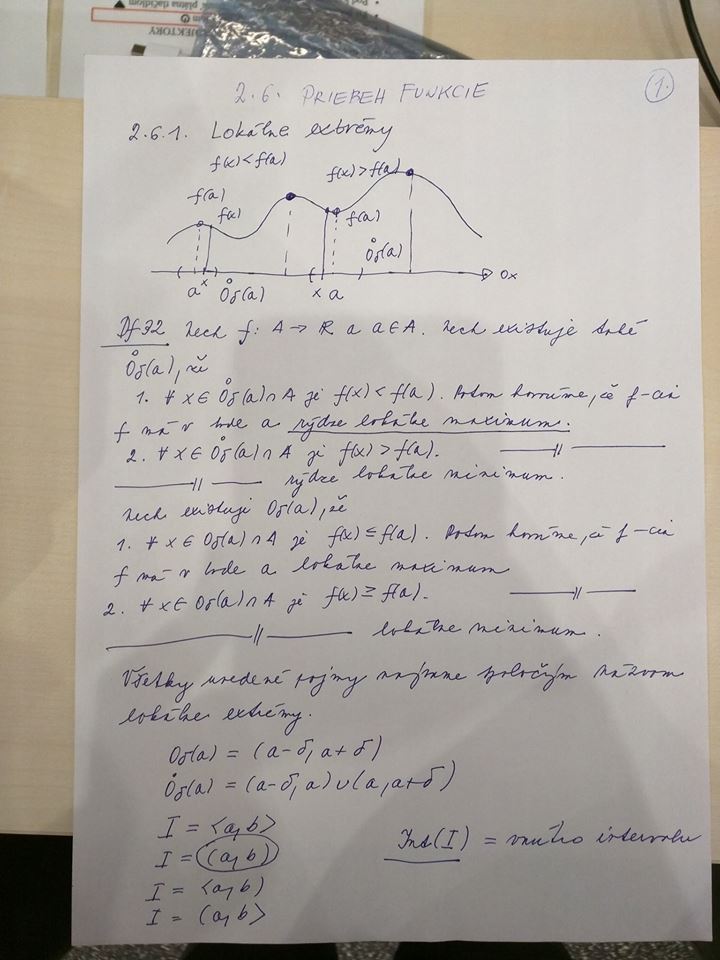 2.6. PRIEBEH FUNKCIE
1.
2.6.1. Lokálne extrémy
f(x) < f(a)
f(x) > f(a)
f(a)
f(x)
f(a)
O̊δ(a)
0x
a x
O̊δ(a)
x a
Df 32 Nech f: A → R a a ∈ A. Nech existuje také
O̊δ(a), že
1. ∀ x ∈ O̊δ(a) ∩ A je f(x) < f(a). Potom hovoríme, že f-cia
f má v bode a rýdze lokálne maximum.
2. ∀ x ∈ O̊δ(a) ∩ A je f(x) > f(a). —||—
—||— rýdze lokálne minimum.
Nech existuje Oδ(a), že
1. ∀ x ∈ Oδ(a) ∩ A je f(x) ≤ f(a). Potom hovoríme, že f-cia
f má v bode a lokálne maximum
2. ∀ x ∈ Oδ(a) ∩ A je f(x) ≥ f(a). —||—
—||— lokálne minimum.
Všetky uvedené pojmy nazývame spoločným názvom
lokálne extrémy.
Oδ(a) = (a-δ, a+δ)
O̊δ(a) = (a-δ, a) ∪ (a, a+δ)
I = <a, b>
I = (a, b)
Int(I) = vnútro intervalu
I = <a, b)
I = (a, b>